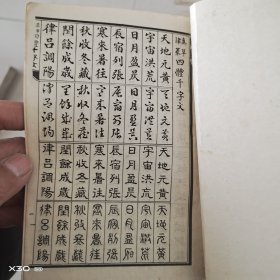 真草
隸篆 四體千字文
天地元黃 天地元黃 天地元黃 天地元黃
宇宙洪荒 宇宙洪荒 宇宙洪荒 宇宙洪荒
日月盈昃 日月盈昃 日月盈昃 日月盈昃
辰宿列張 辰宿列張 辰宿列張 辰宿列張
寒來暑往 寒來暑往 寒來暑往 寒來暑往
秋收冬藏 秋收冬藏 秋收冬藏 秋收冬藏
閏餘成歲 閏餘成歲 閏餘成歲 閏餘成歲
律呂調陽 律呂調陽 律呂調陽 律呂調陽
X30